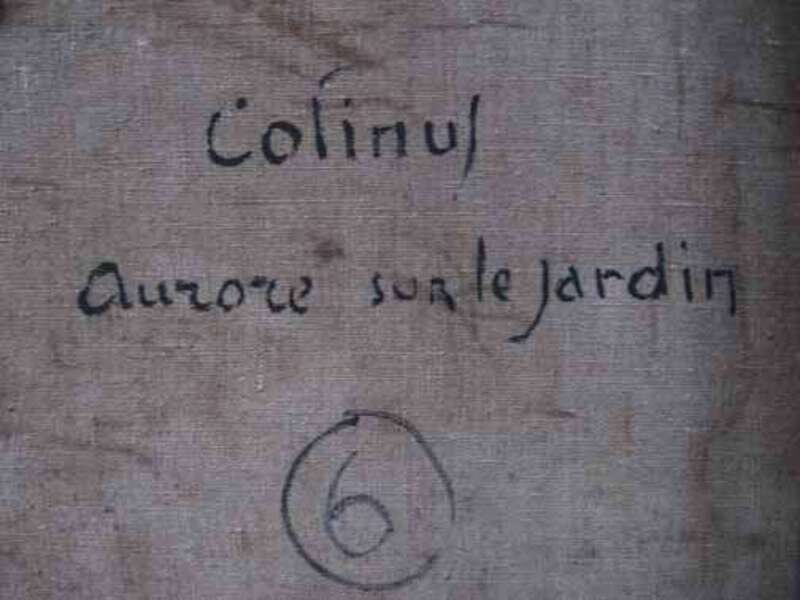 Colinus
aurore sur le jardin
6